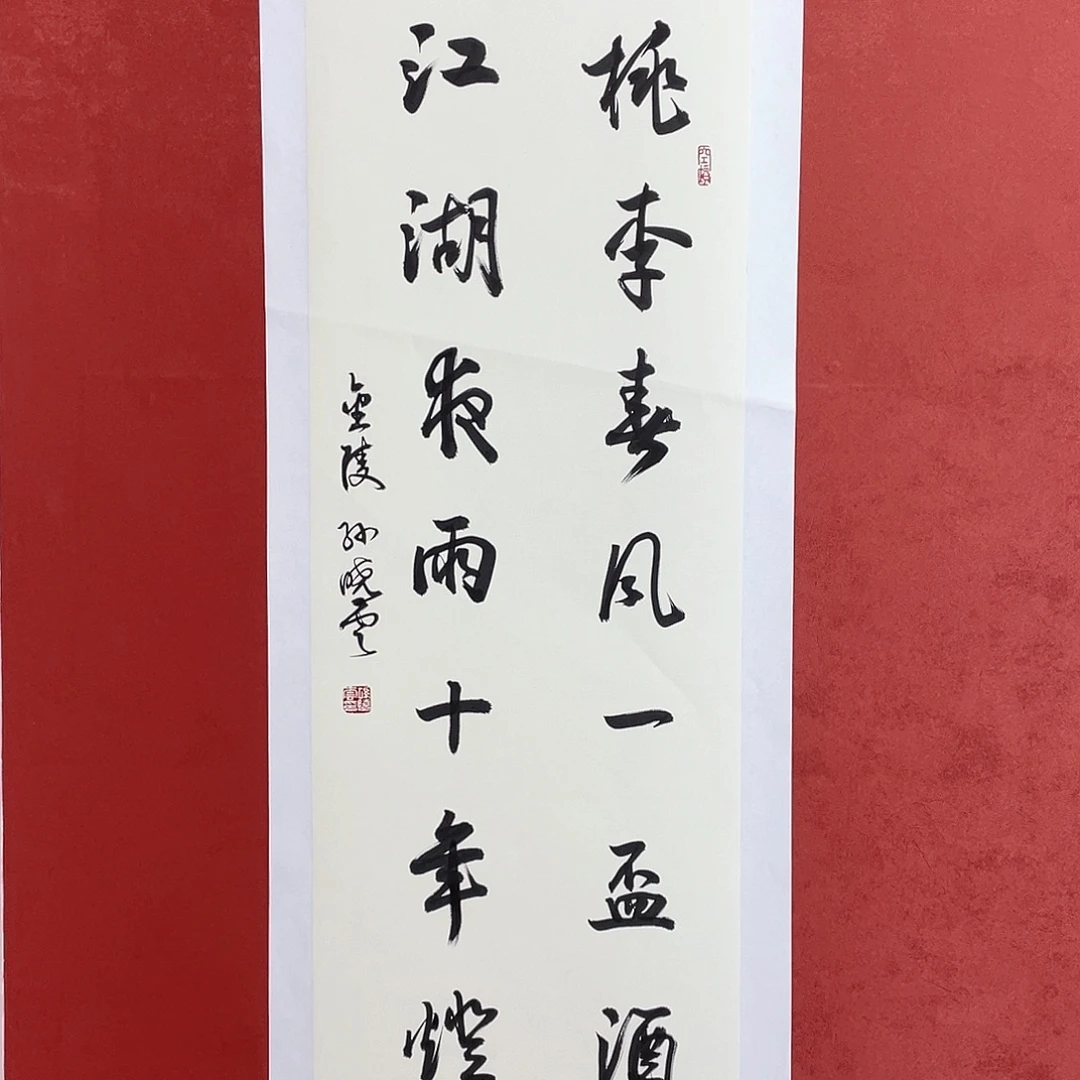 桃李春风一盃酒
江湖夜雨十年燈
金陵孙晓云